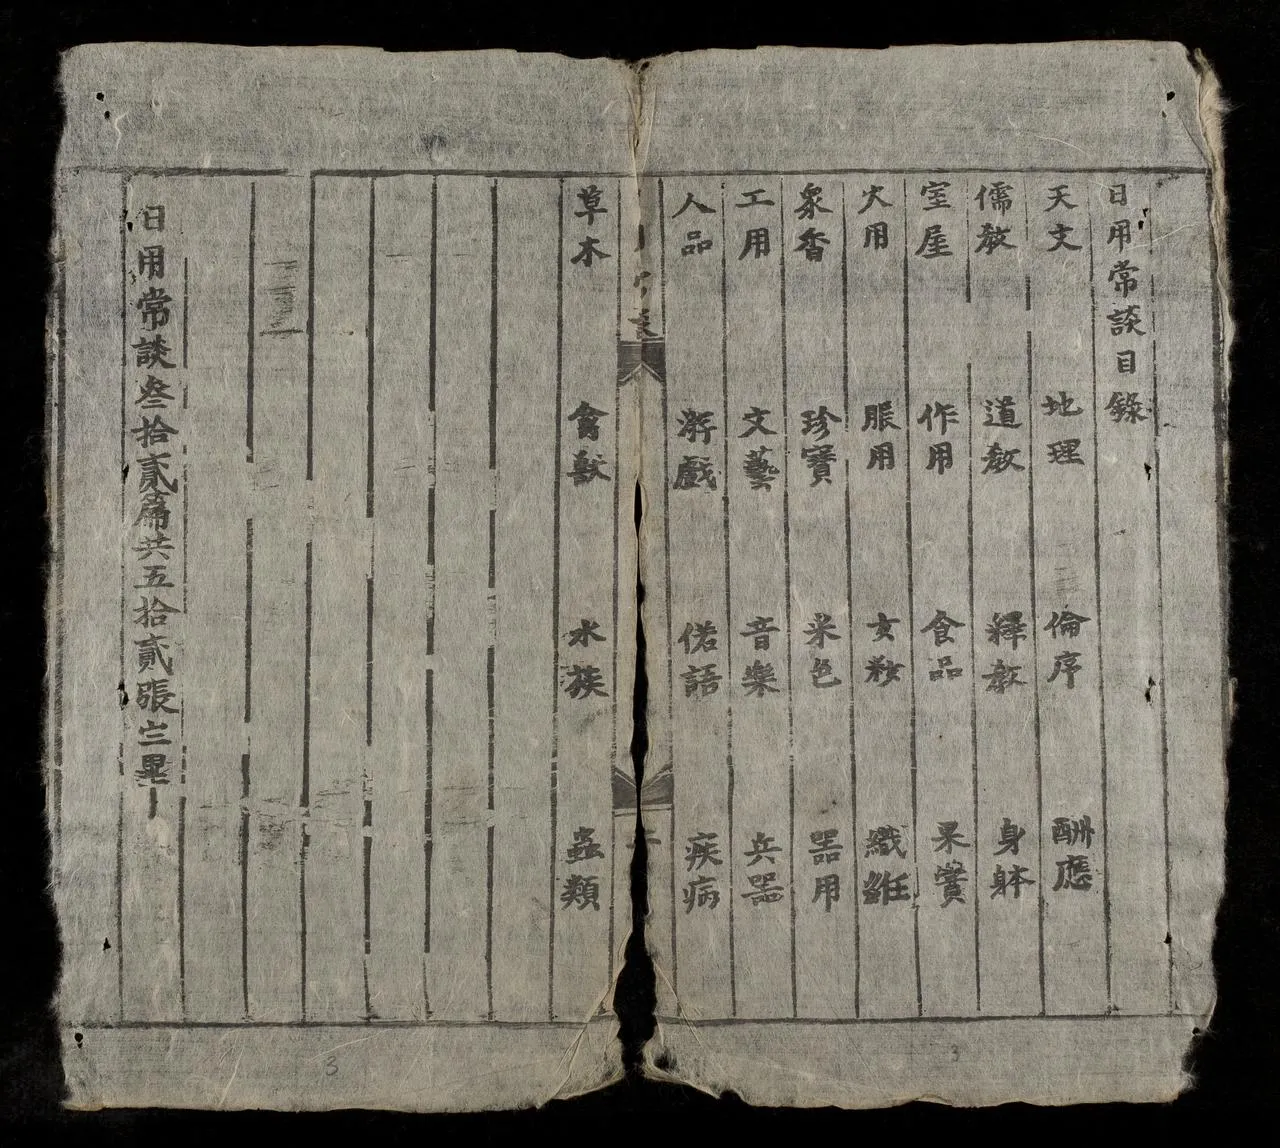 日用常談目錄
天文 地理 倫序 酬應
儒教 道教 釋教 身躰
室屋 作用 食品 果實
火用 服用 女籹 織絍
衆香 珍寶 米色 噐用
工用 文藝 音樂 兵噐
人品 游戲 偌語 疾病
常談
二
草木 禽獸 水族 蟲類
日用常談叁拾貳篇共五拾貳張畢
3
3